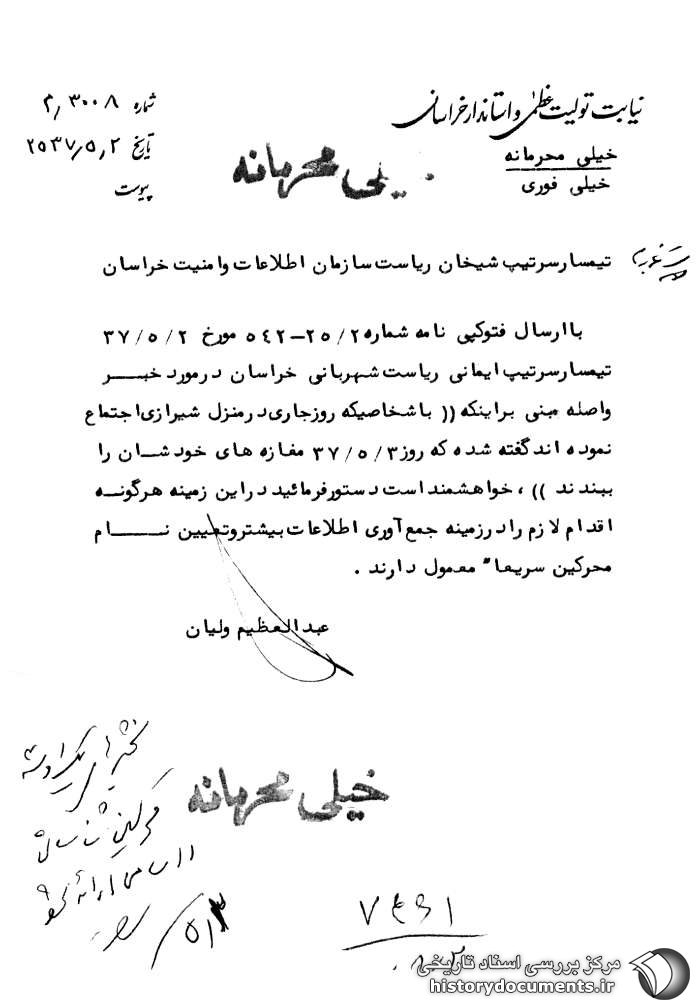 نیابت تولیت عظمی و استاندار خراسان
خیلی محرمانه
خیلی فوری
شماره ۳۰۰۸/م
تاریخ ۲۵۳۷/۵/۲
پیوست
خیلی محرمانه
تیمسار سرتیپ شیخان ریاست سازمان اطلاعات و امنیت خراسان
با ارسال فتوکپی نامه شماره ۲۵/۲–۵٤۲ مورخ ۳۷/۵/۲
تیمسار سرتیپ ایمانی ریاست شهربانی خراسان در مورد خبر
واصله مبنی بر اینکه (( با شخاصیکه روز جاری در منزل شیرازی اجتماع
نموده اند گفته شده که روز ۳۷/۵/۳ مغازه های خود شان را
ببندند )) ، خواهشمند است دستور فرمائید در این زمینه هرگونه
اقدام لازم را در زمینه جمع آوری اطلاعات بیشتر و تعیین نام
محرکین سریعا" معمول دارند .
عبدالعظیم ولیان
خیلی محرمانه
۵/۳
مرکز بررسی اسناد تاریخی
historydocuments.ir